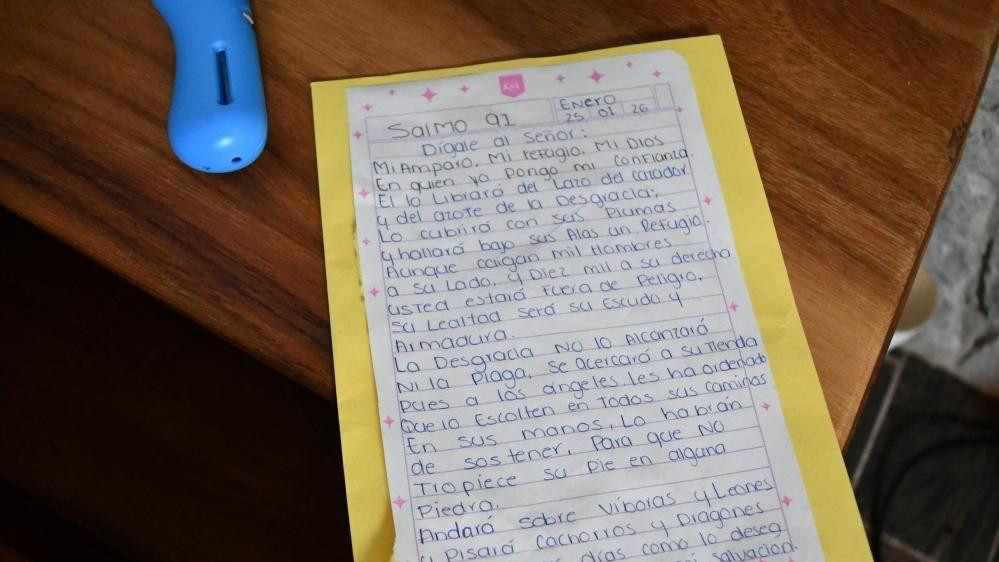 Salmo 91
Enero
25 01 26
Dígale al Señor:
Mi Amparo, Mi refugio, Mi Dios
En quien yo pongo mi confianza.
El lo Librará del Lazo del cazador
y del azote de la Desgracia;
Lo cubrirá con sus Plumas
y hallará bajo sus Alas un Refugio.
Aunque caigan mil Hombres
a su Lado, y Diez mil a su derecha
usted estará Fuera de Peligro,
su Lealtad será su Escudo y
Armadura.
La Desgracia No lo Alcanzará
Ni la Plaga, se acercará a su Tienda
pues a los ángeles, les ha ordenado
Que lo Escolten en Todos sus caminos
En sus manos, Lo habrán
de sostener, Para que NO
Tropiece su Pie en alguna
Piedra.
Andará sobre Víboras y Leones
y Pisará Cachorros y Dragones
días como lo desea
salvación.